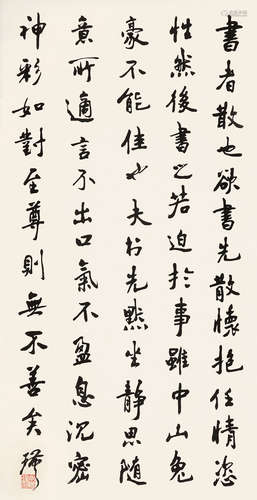 書者散也欲書先散懷抱任情恣
性然後書之若迫於事雖中山兔
豪不能佳也夫先默坐靜思隨
意所適言不出口氣不盈息沉密
神彩如對至尊則無不善矣